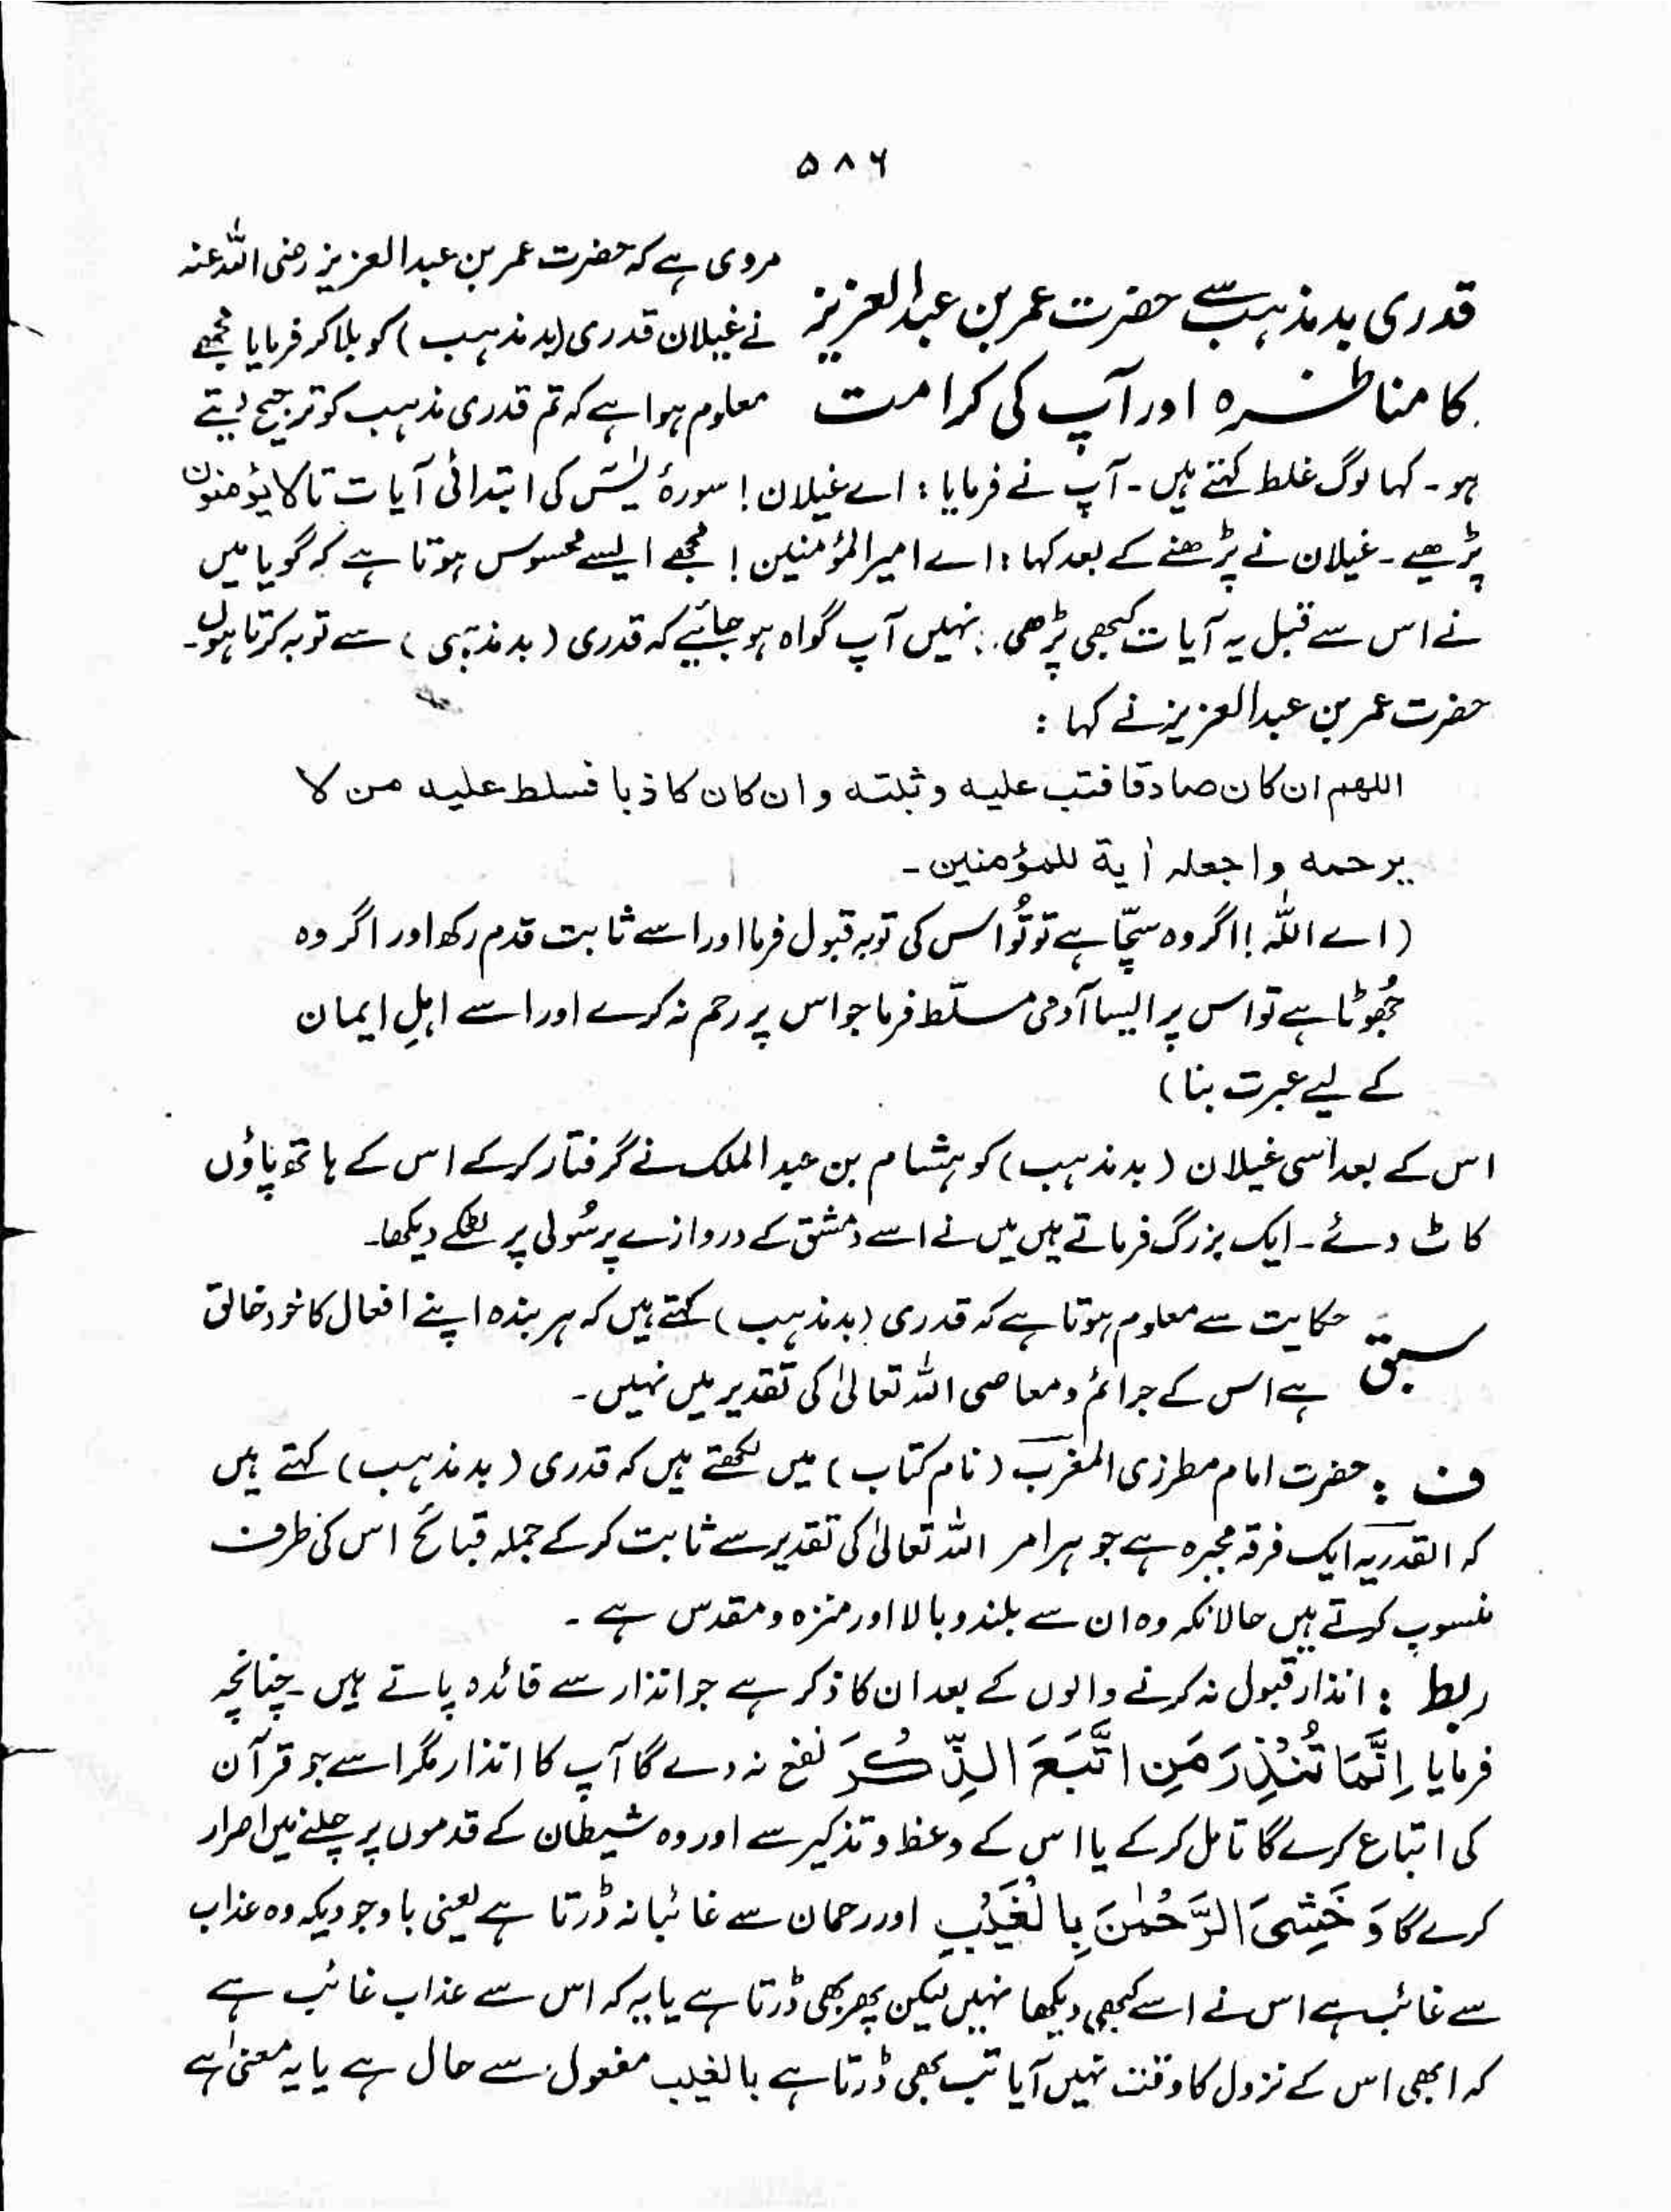 ۵۸۶
قدری بدمذہب سے حضرت عمر بن عبدالعزیز
کا مناظرہ اور آپ کی کرامت
مروی ہے کہ حضرت عمر بن عبدالعزیز رضی اللہ عنہ
نے غیلان قدری (بدمذہب) کو بلا کر فرمایا مجھے
معلوم ہوا ہے کہ تم قدری مذہب کو ترجیح دیتے
ہو۔ کہا لوگ غلط کہتے ہیں۔ آپ نے فرمایا : اے غیلان ! سورۂ یٰسٓ کی ابتدائی آیات تا لا یؤمنون
پڑھیے۔ غیلان نے پڑھنے کے بعد کہا : اے امیر المؤمنین ! مجھے ایسے محسوس ہوتا ہے کہ گویا میں
نے اس سے قبل یہ آیات کبھی پڑھی نہیں آپ گواہ ہو جائیے کہ قدری (بدمذہبی) سے توبہ کرتا ہوں۔
حضرت عمر بن عبدالعزیز نے کہا :
اللهم ان كان صادقا فتب عليه وثبته وان كان كاذبا فسلط عليه من لا
يرحمه واجعله أية للمؤمنين۔
(اے اللہ ! اگر وہ سچّا ہے تو تُو اس کی توبہ قبول فرما اور اسے ثابت قدم رکھ اور اگر وہ
جُھوٹا ہے تو اس پر ایسا آدمی مسلّط فرما جو اس پر رحم نہ کرے اور اسے اہلِ ایمان
کے لیے عبرت بنا)
اس کے بعد اسی غیلان (بدمذہب) کو ہشام بن عبد الملک نے گرفتار کرکے اس کے ہاتھ پاؤں
کاٹ دئے۔ ایک بزرگ فرماتے ہیں میں نے اسے دمشق کے دروازے پر سُولی پر لٹکے دیکھا۔
سبق حکایت سے معلوم ہوتا ہے کہ قدری (بدمذہب) کہتے ہیں کہ ہر بندہ اپنے افعال کا خود خالق
ہے اس کے جرائم و معاصی اللہ تعالیٰ کی تقدیر میں نہیں۔
ف : حضرت امام مطرزی المغرب (نام کتاب) میں لکھتے ہیں کہ قدری (بدمذہب) کہتے ہیں
کہ القدریہ ایک فرقہ مجبرہ ہے جو ہر امر اللہ تعالیٰ کی تقدیر سے ثابت کر کے جملہ قبائح اس کی طرف
منسوب کرتے ہیں حالانکہ وہ ان سے بلند و بالا اور منزہ و مقدس ہے۔
ربط : انذار قبول نہ کرنے والوں کے بعد ان کا ذکر ہے جو انذار سے فائدہ پاتے ہیں۔ چنانچہ
فرمایا اِنَّمَا تُنْذِرُ مَنِ اتَّبَعَ الذِّكْرَ نفع نہ دے گا آپ کا انذار مگر اسے جو قرآن
کی اتباع کرے گا تامل کر کے یا اس کے وعظ و تذکیر سے اور وہ شیطان کے قدموں پر چلنے میں اصرار
کرے گا وَ خَشِیَ الرَّحْمٰنَ بِالْغَیْبِ اور رحمان سے غائبانہ ڈرتا ہے یعنی باوجودیکہ وہ عذاب
سے غائب ہے اس نے اسے کبھی دیکھا نہیں لیکن پھر بھی ڈرتا ہے یا یہ کہ اس سے عذاب غائب ہے
کہ ابھی اس کے نزول کا وقت نہیں آیا تب بھی ڈرتا ہے بالغیب مفعول سے حال ہے یا یہ معنیٰ ہے